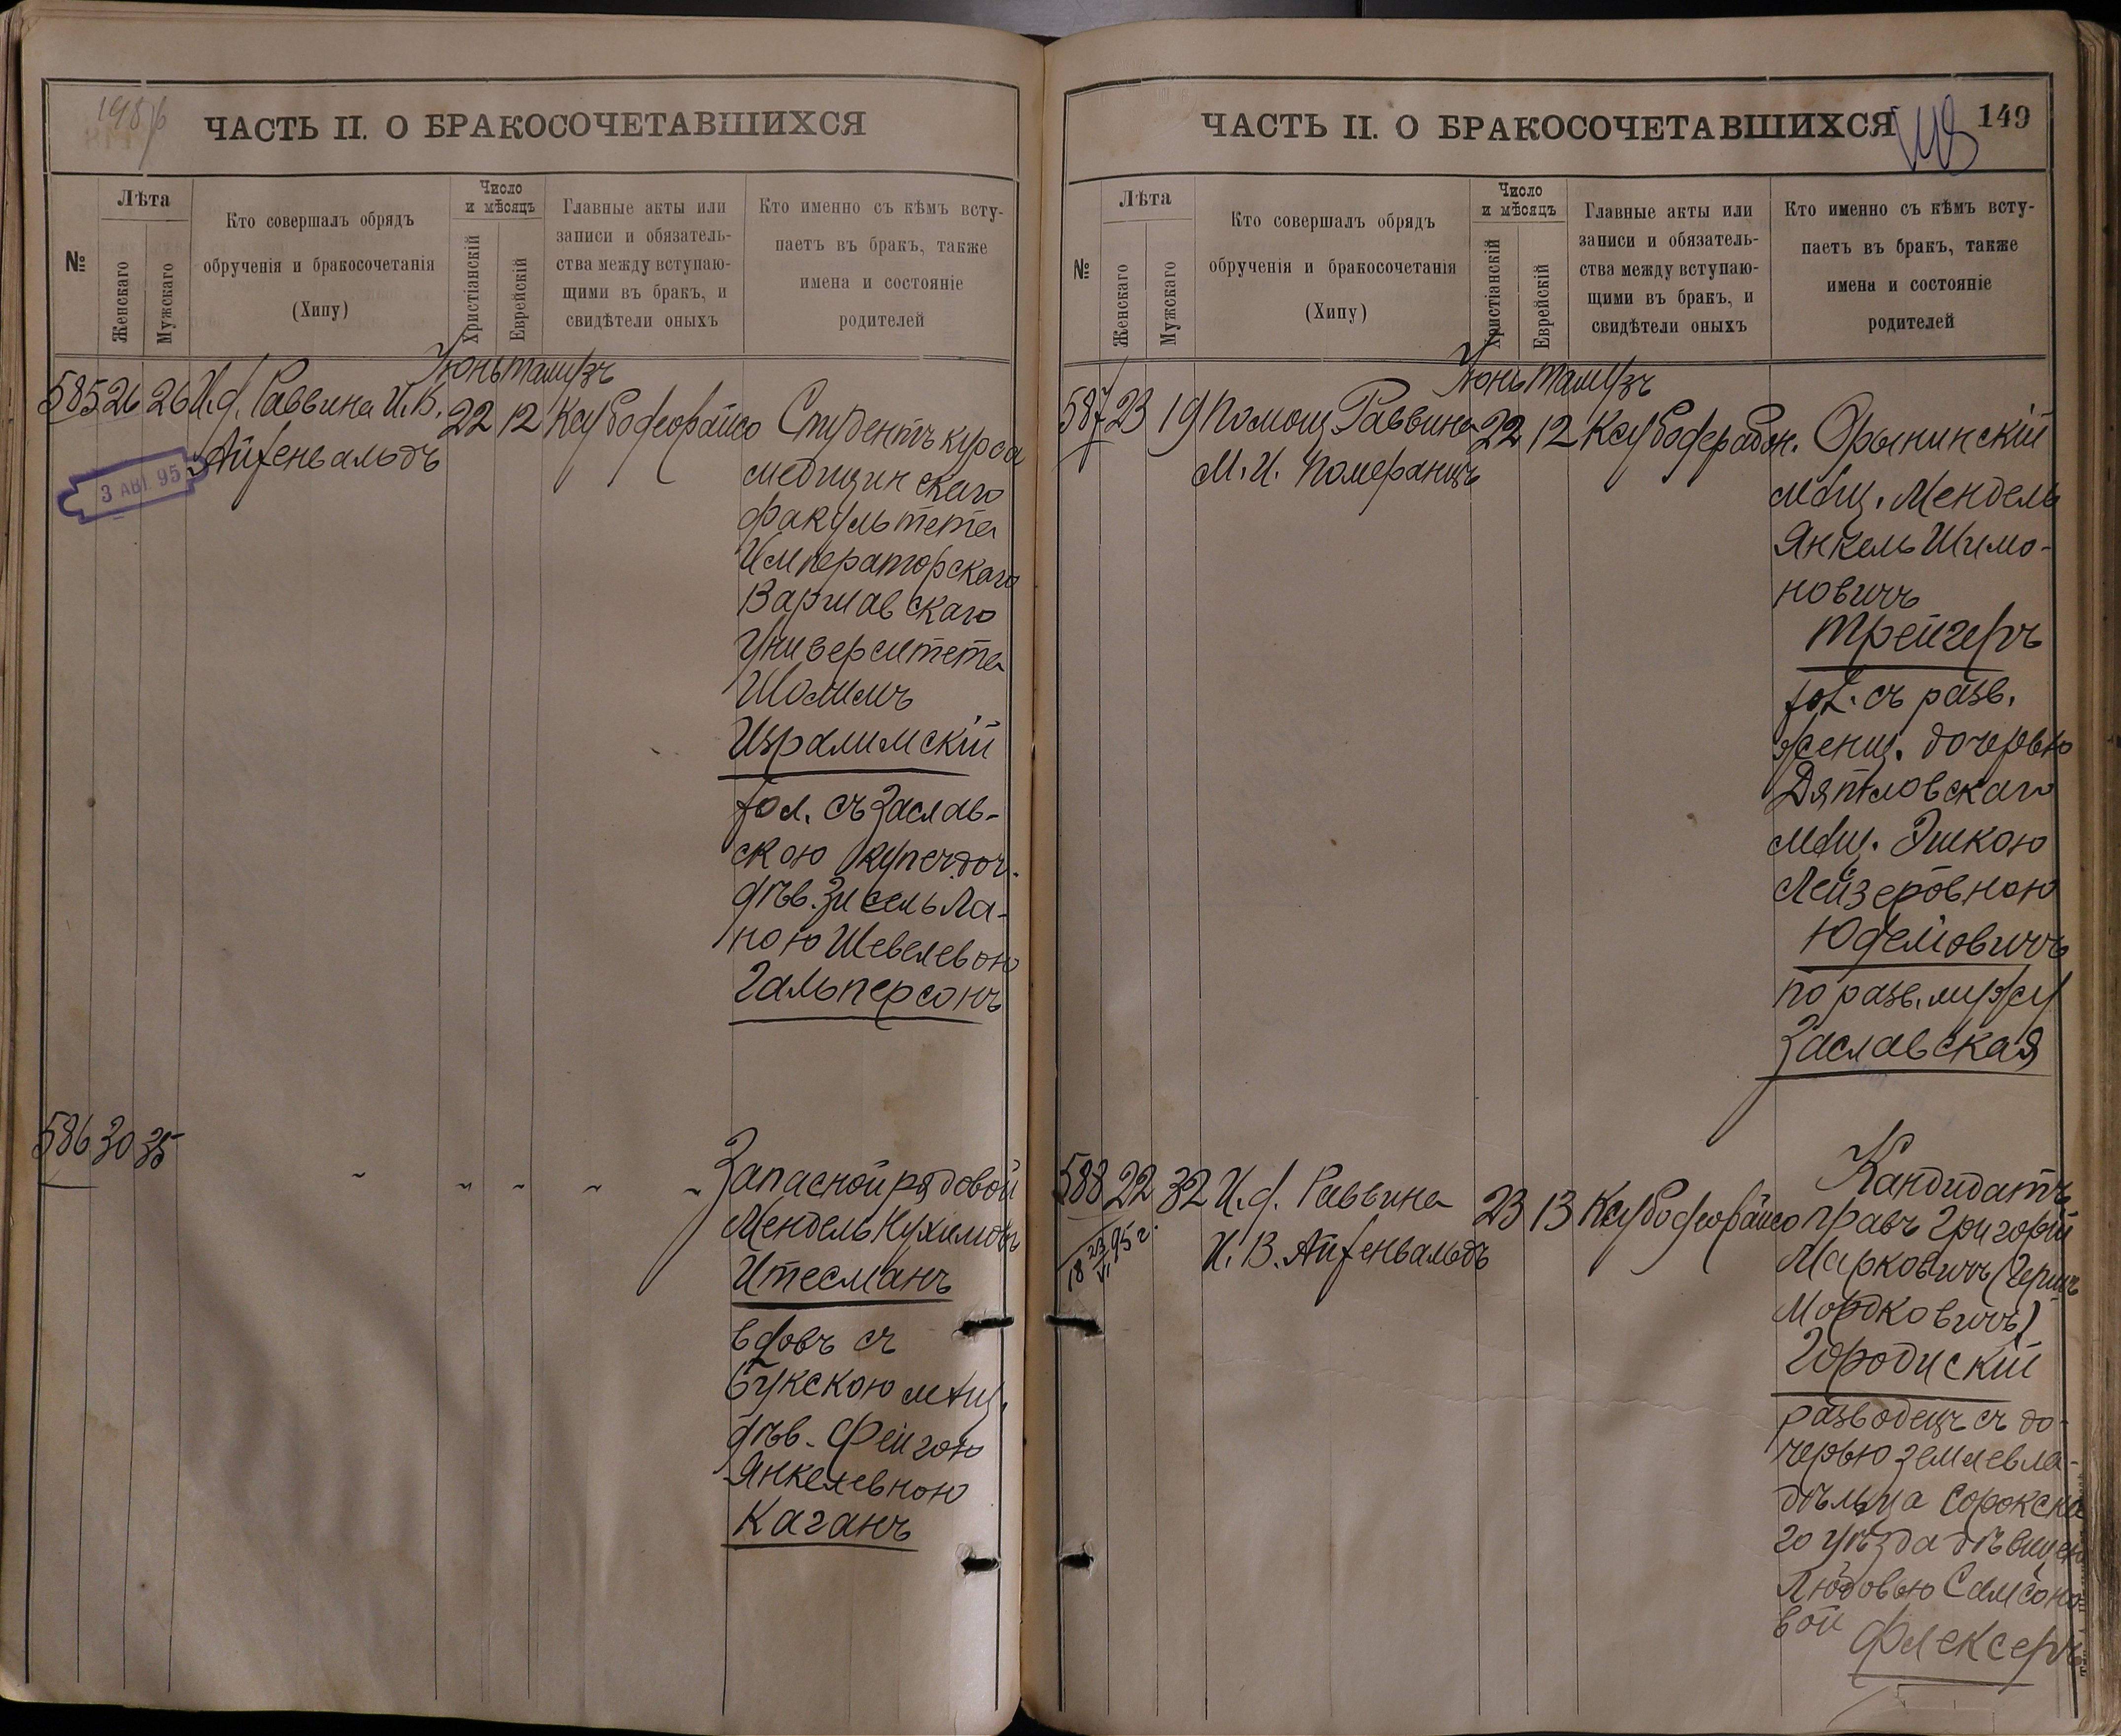 198
ЧАСТЬ II. О БРАКОСОЧЕТАВШИХСЯ
№
Лѣта
Женскаго
Мужскаго
Кто совершалъ обрядъ
обрученія и бракосочетанія
(Хипу)
Число
и мѣсяцъ
Христіанскій
Еврейскій
Главные акты или
записи и обязатель-
ства между вступаю-
щими въ бракъ, и
свидѣтели оныхъ
Кто именно съ кѣмъ всту-
паетъ въ бракъ, также
имена и состояніе
родителей
Іюнь Тамузъ
585 26 26 И.д. Раввина И.В.
Айзенвальдъ
22 12
3 АВГ. 95
Студентъ курса
медицинскаго
факультета
Императорскаго
Варшавскаго
Университета
Израилимскій
хол. съ Заслав-
скою купеч. доч.
дѣв. Зисель Ла-
ною Шевелевою
Гальперсонъ
586 30 35
" " " " "
Запасной рядовой
Мендель
Итесманъ
вдовъ съ
Букскою мѣщ.
дѣв. Фейгою
Янкелевною
Каганъ
ЧАСТЬ II. О БРАКОСОЧЕТАВШИХСЯ
149
№
Лѣта
Женскаго
Мужскаго
Кто совершалъ обрядъ
обрученія и бракосочетанія
(Хипу)
Число
и мѣсяцъ
Христіанскій
Еврейскій
Главные акты или
записи и обязатель-
ства между вступаю-
щими въ бракъ, и
свидѣтели оныхъ
Кто именно съ кѣмъ всту-
паетъ въ бракъ, также
имена и состояніе
родителей
Іюнь Тамузъ
587 23 19 Помощ. Раввина
М. И. Померанцъ
22 12
Орынинскій
мѣщ. Мендель
Янкель Шимо-
новичъ
Трейгеръ
хол. съ разв.
женщ. дочерью
Дятловскаго
мѣщ. Эшкою
Лейзеровною
Юделовичъ
по разв. мужу
Заславская
588 22 32 И.д. Раввина
И. В. Айзенвальдъ
23 13
18 23/VI 95 г.
Кандидатъ
правъ Григорій
Марковичъ (Гершъ
Мордковичъ)
Городискій
разводецъ съ до-
черью землевла-
дѣльца Сорокска
го уѣзда дѣвицею
Любовью Самсоно
вой Флексеръ